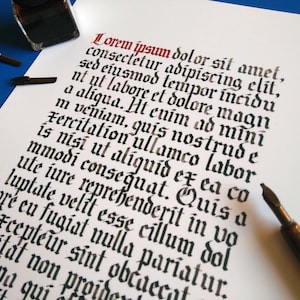 Lorem ipsum dolor sit amet,
consectetur adipiscing elit,
sed eiusmod tempor incidu
nt ut labore et dolore magn
a aliqua. Ut enim ad mini
m veniam, quis nostrud e
xercitation ullamco labor
is nisi ut aliquid ex ea co
mmodi consequat. Quis a
ute iure reprehenderit in vo
luptate velit esse cillum dol
ore eu fugiat nulla pariatur.
Excepteur sint obcaecat
itat non proident
na qui